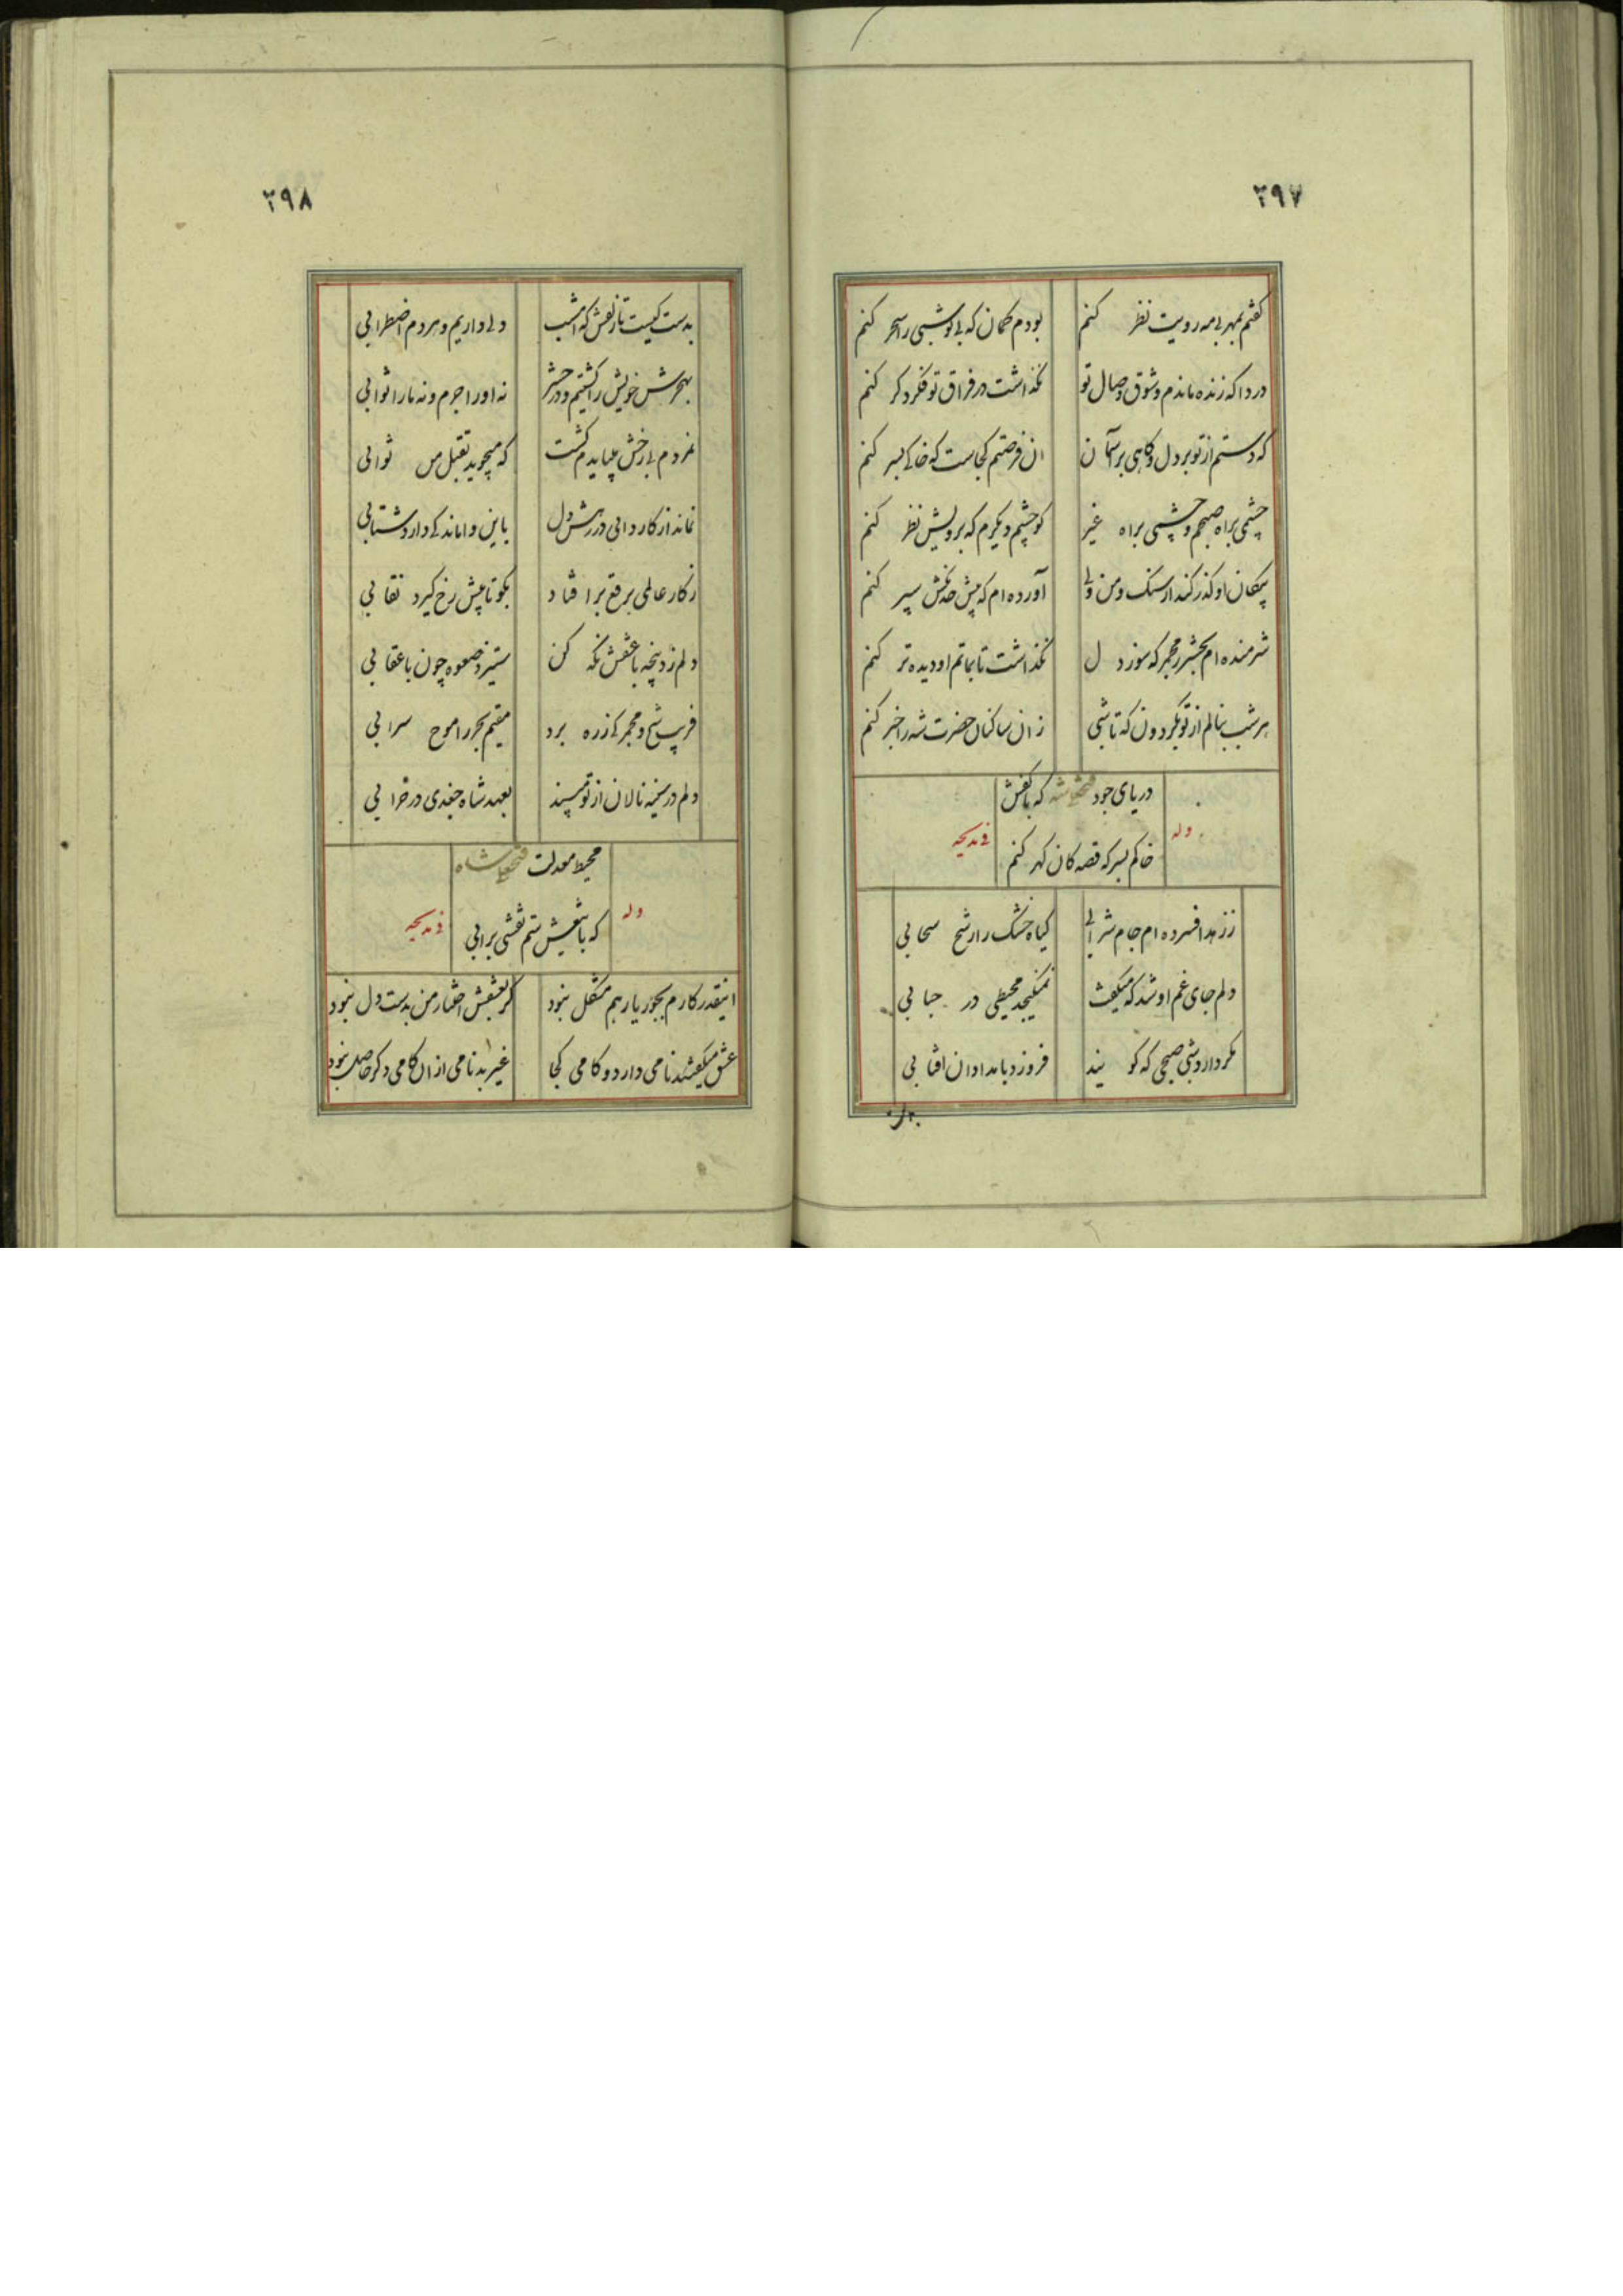 ۲۹۷
گفتم بمهر بی مه رویت نظر کنم بودم گمان که بی تو شبی را سحر کنم
دردا که زنده ماندم و شوق وصال تو نگذاشت در فراق تو فکر دگر کنم
که دستم از تو بر دل و گاهی بر آسمان آن فرصتم کجاست که خاکی بسر کنم
چشمی براه صبحم و چشمی براه غیر کو چشم دیگرم که برویش نظر کنم
پیکان او گذر کند از سنگ و من ولی آورده ام که پیش خدنگش سپر کنم
شرمنده ام بحشر ز مجمر که سوز دل نگذاشت تا بماتم او دیده تر کنم
هر شب بنالم از تو بگردون که تا شبی زان ساکنان حضرت شه را خبر کنم
دریای جود فتحعلی شه که با کفش
وله فی مدیحه
خاکم بسر که قصه کان گهر کنم
ز زهد افسرده ام جام شرابی گیاه خشک را رشح سحابی
دلم جای غم او شد که میگفت نمیگنجد محیطی در حبابی
مگر دارد شبی صبحی که گویند فروزد بامدادان آفتابی
بدست
۲۹۸
بدست کیست تا زلفش که امشب دلی داریم و هر دم اضطرابی
بهجرش خویش را کشتیم و در حشر نه او را جرم و نه ما را ثوابی
نمردم بی رخش میبایدم کشت که میجوید بقتل من ثوابی
نماند از کاروانی در رهش دل باین وامانده کی دارد شتابی
ز کار عالمی برقع برافتاد بگو تا پیش رخ گیرد نقابی
دلم زد پنجه با عشقش نگه کن ستیزد صعوه چون با عقابی
فریب شیخ و مجمر کی ز ره برد مقیم بحر را موج سرابی
دلم در سینه نالان از تو مپسند بعهد شاه جغدی در خرابی
محیط معدلت فتحعلی شاه
وله فی مدیحه
که با تیغش ستم نقشی بر آبی
اینقدر کارم بجور یار هم مشکل نبود گر بعشقش اختیار من بدست دل نبود
عشق میگفتند نامی دارد و کامی کجا غیر بدنامی از آن کامی دگر حاصل نبود